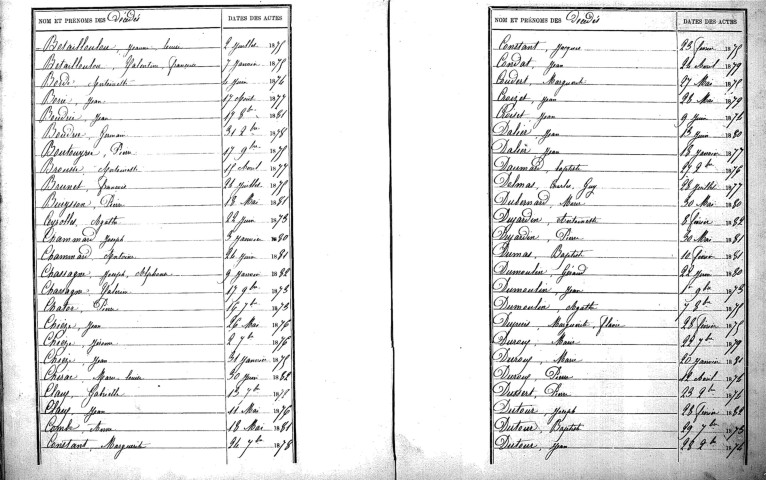 NOM ET PRÉNOMS DES Décédés DATES DES ACTES
Betaillouloux, Jeanne 2 juillet 1875
Betailloulou, Valentine Françoise 7 Janvier 1875
Borde Antoinette 6 Juin 1876
Borie, Jean 17 Août 1877
Boudrie, Jean 17 8bre 1881
Boudrie, Germain 31 1878
Boutouyrie, Pierre 17 9bre 1875
Brousse Antoinette 15 Avril 1877
Brunet, François 21 juillet 1875
Bueysson, Pierre 18 Mai 1881
Ceyrolles, Agathe 22 Juin 1873
Chammard Joseph 3 Janvier 1880
Chammard Antoine 24 Juin 1881
Chassagne, Joseph, Alphonse 9 Janvier 1882
Chassagne Valerie 17 9bre 1873
Chatou, Pierre 16 7bre 1873
Chieze, Jean 26 Mai 1876
Chieze, 2 7bre 1876
Chieze, Jean 31 Janvier 1875
Marie 30 Juin 1882
Clauy, Gabrielle 13 7bre 1875
Clauy, Jean 11 Mai 1876
Combe, Anna 18 Mai 1881
Constant, Marguerite 24 7bre 1878
NOM ET PRÉNOMS DES Décédés DATES DES ACTES
Constant, Jacques 23 février 1875
Condat, Jean 24 Avril 1879
Coudert, Marguerite 27 Mai 1875
Croizet, Jean 28 Mai 1879
Croizet, Jean 9 Juin 1876
Dalier, Jean 13 Juin 1880
Dalier, Jean 18 Janvier 1877
Daumard, baptiste 27 1876
Delmas, Charles, Guy 28 juillet 1877
Dubernard, Marie 30 Mai 1880
Dujardin, Antoinette 8 février 1882
Dujardin, Pierre 30 Mai 1881
Dumas, Baptiste 10 février 1881
Dumoulin, Géraud 22 Juin 1880
Dumoulin, Jean 1er 9bre 1873
Dumoulin, Agathe 7 8bre 1875
Dupuis, Marguerite, 28 février 1875
Duroux, Marie 22 7bre 1879
Duroux, Marie 20 Janvier 1881
Duroux, Pierre 12 Avril 1876
Dussert, Pierre 23 1876
Dutour, Joseph 28 février 1882
Dutour, Baptiste 29 7bre 1873
Dutour, Jean 23 1876